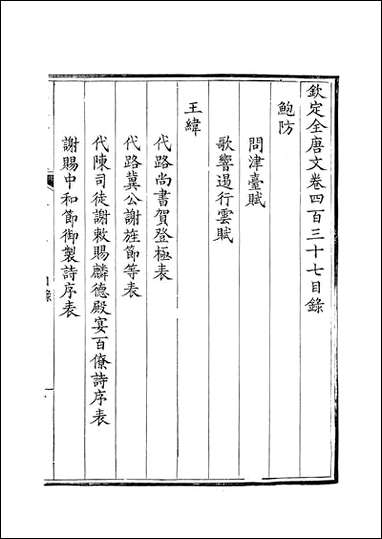 欽定全唐文卷四百三十七目錄
鮑防
問津臺賦
歌響遏行雲賦
王緯
代路尚書賀登極表
代路冀公謝旌節等表
代陳司徒謝敕賜麟德殿宴百僚詩序表
謝賜中和節御製詩序表
目錄
一